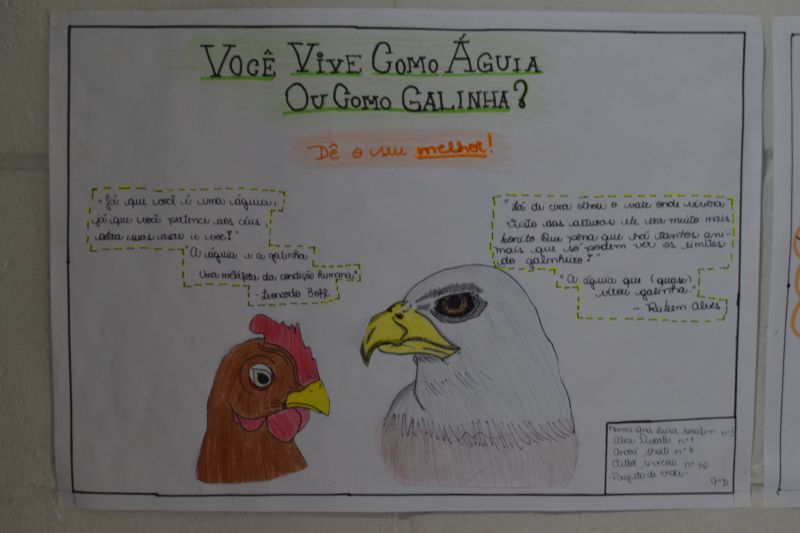 VOCÊ VIVE COMO ÁGUIA
OU COMO GALINHA?
Dê o seu melhor!
"Já que você é uma águia,
já que você pertence aos céus
abra suas asas e voe!"
"A águia e a galinha
Uma metáfora da condição humana"
- Leonardo Boff
"Lá de cima olhou o vale onde vivera
Visto das alturas ele era muito mais
bonito. Que pena que há tantos ani-
mais que só podem ver os limites
do galinheiro!"
"A águia que (quase)
virou galinha"
- Rubem Alves
Nomes: Ana Luisa Serafim nº3
Alice nº1
André nº4
nº 36
-Projeto de
9ºD